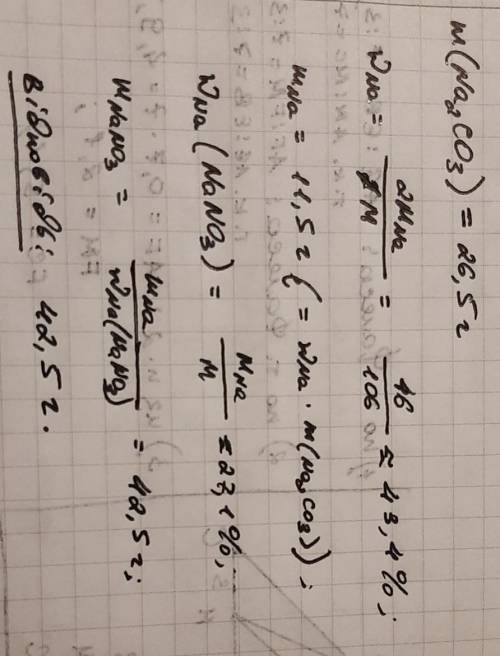 m(Na₂CO₃) = 26,5г
wNa = 2MNa/M = 46/106 ≈ 43,4%;
mNa = 11,5г (= wNa · m(Na₂CO₃));
wNa(NaNO₃) = MNa/M ≈ 27,1%;
mNaNO₃ = mNa/wNa(NaNO₃) = 42,5г;
Відповідь: 42,5г.